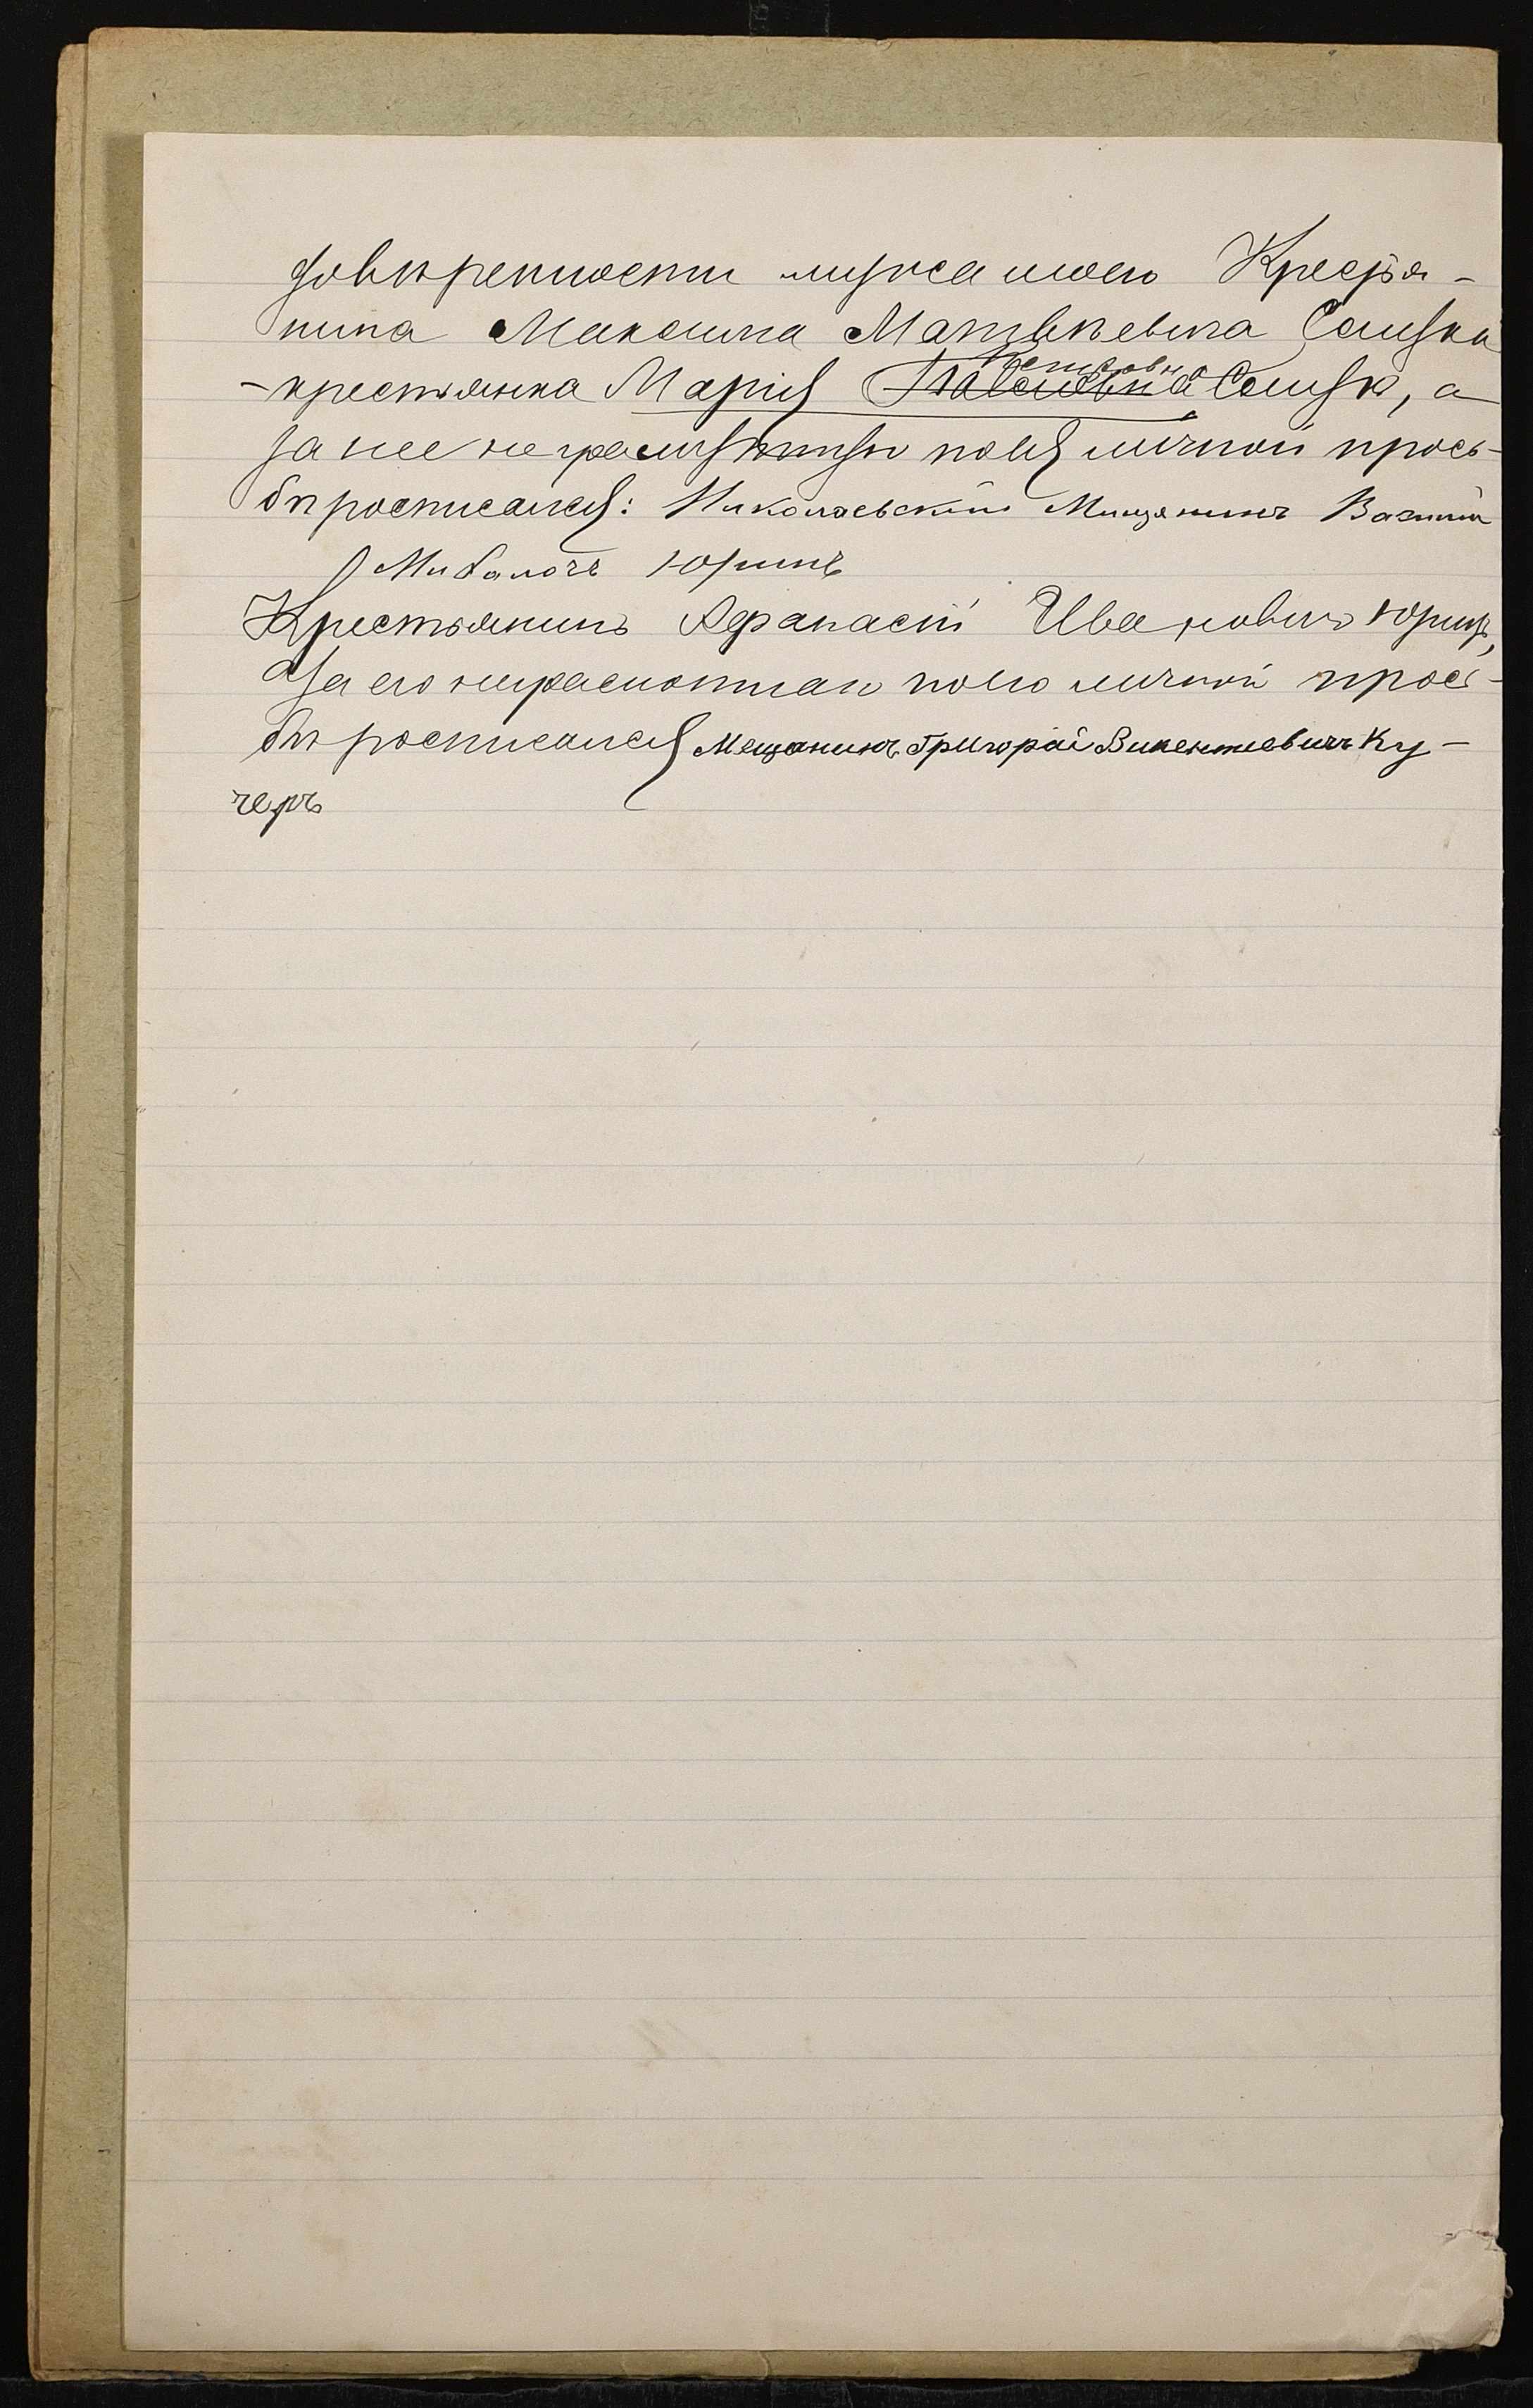 довѣренности мужа моего Крестья-
нина Максима Матвѣевича
-крестьянка Марія Петровна Павловна, а
за нее неграмотную по ея личной прось-
бѣ росписался: Николаевскій Мищанинъ
Юринъ
Крестьянинъ Афанасій Ивановичъ Юринъ,
а за его неграмотнаго по его личной прось-
бѣ росписался Мещанинъ Григорій Викентиевичъ Ку-
черъ